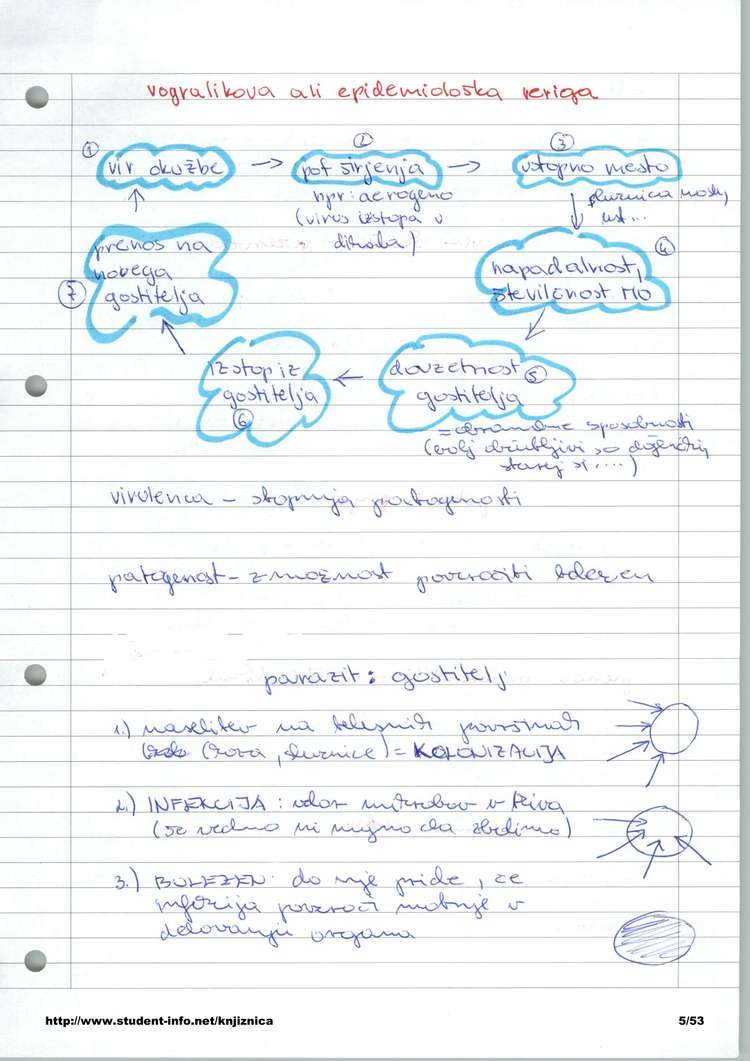 vogralikova ali epidemiološka veriga
① vir okužbe →
② pot širjenja →
npr: aerogeno
(virus izstopa v
dihala)
③ vstopno mesto
sluznica nosu,
ust...
④ napadalnost,
številčnost MO
dovzetnost ⑤
gostitelja
= obrambne sposobnosti
(bolj občutljivi so dojenčki,
starejši....)
izstop iz
gostitelja
⑥
prenos na
novega
⑦ gostitelja
virulenca – stopnja patogenosti
patogenost – zmožnost povzročiti bolezen
parazit : gostitelj
1.) naselitev na telesnih površinah
(koža, sluznice) = KOLONIZACIJA
2.) INFEKCIJA : vdor mikrobov v tkiva
(še vedno ni nujno da zbolimo)
3.) BOLEZEN: do nje pride, če
infekcija povzroči motnje v
delovanju organa
http://www.student-info.net/knjiznica
5/53